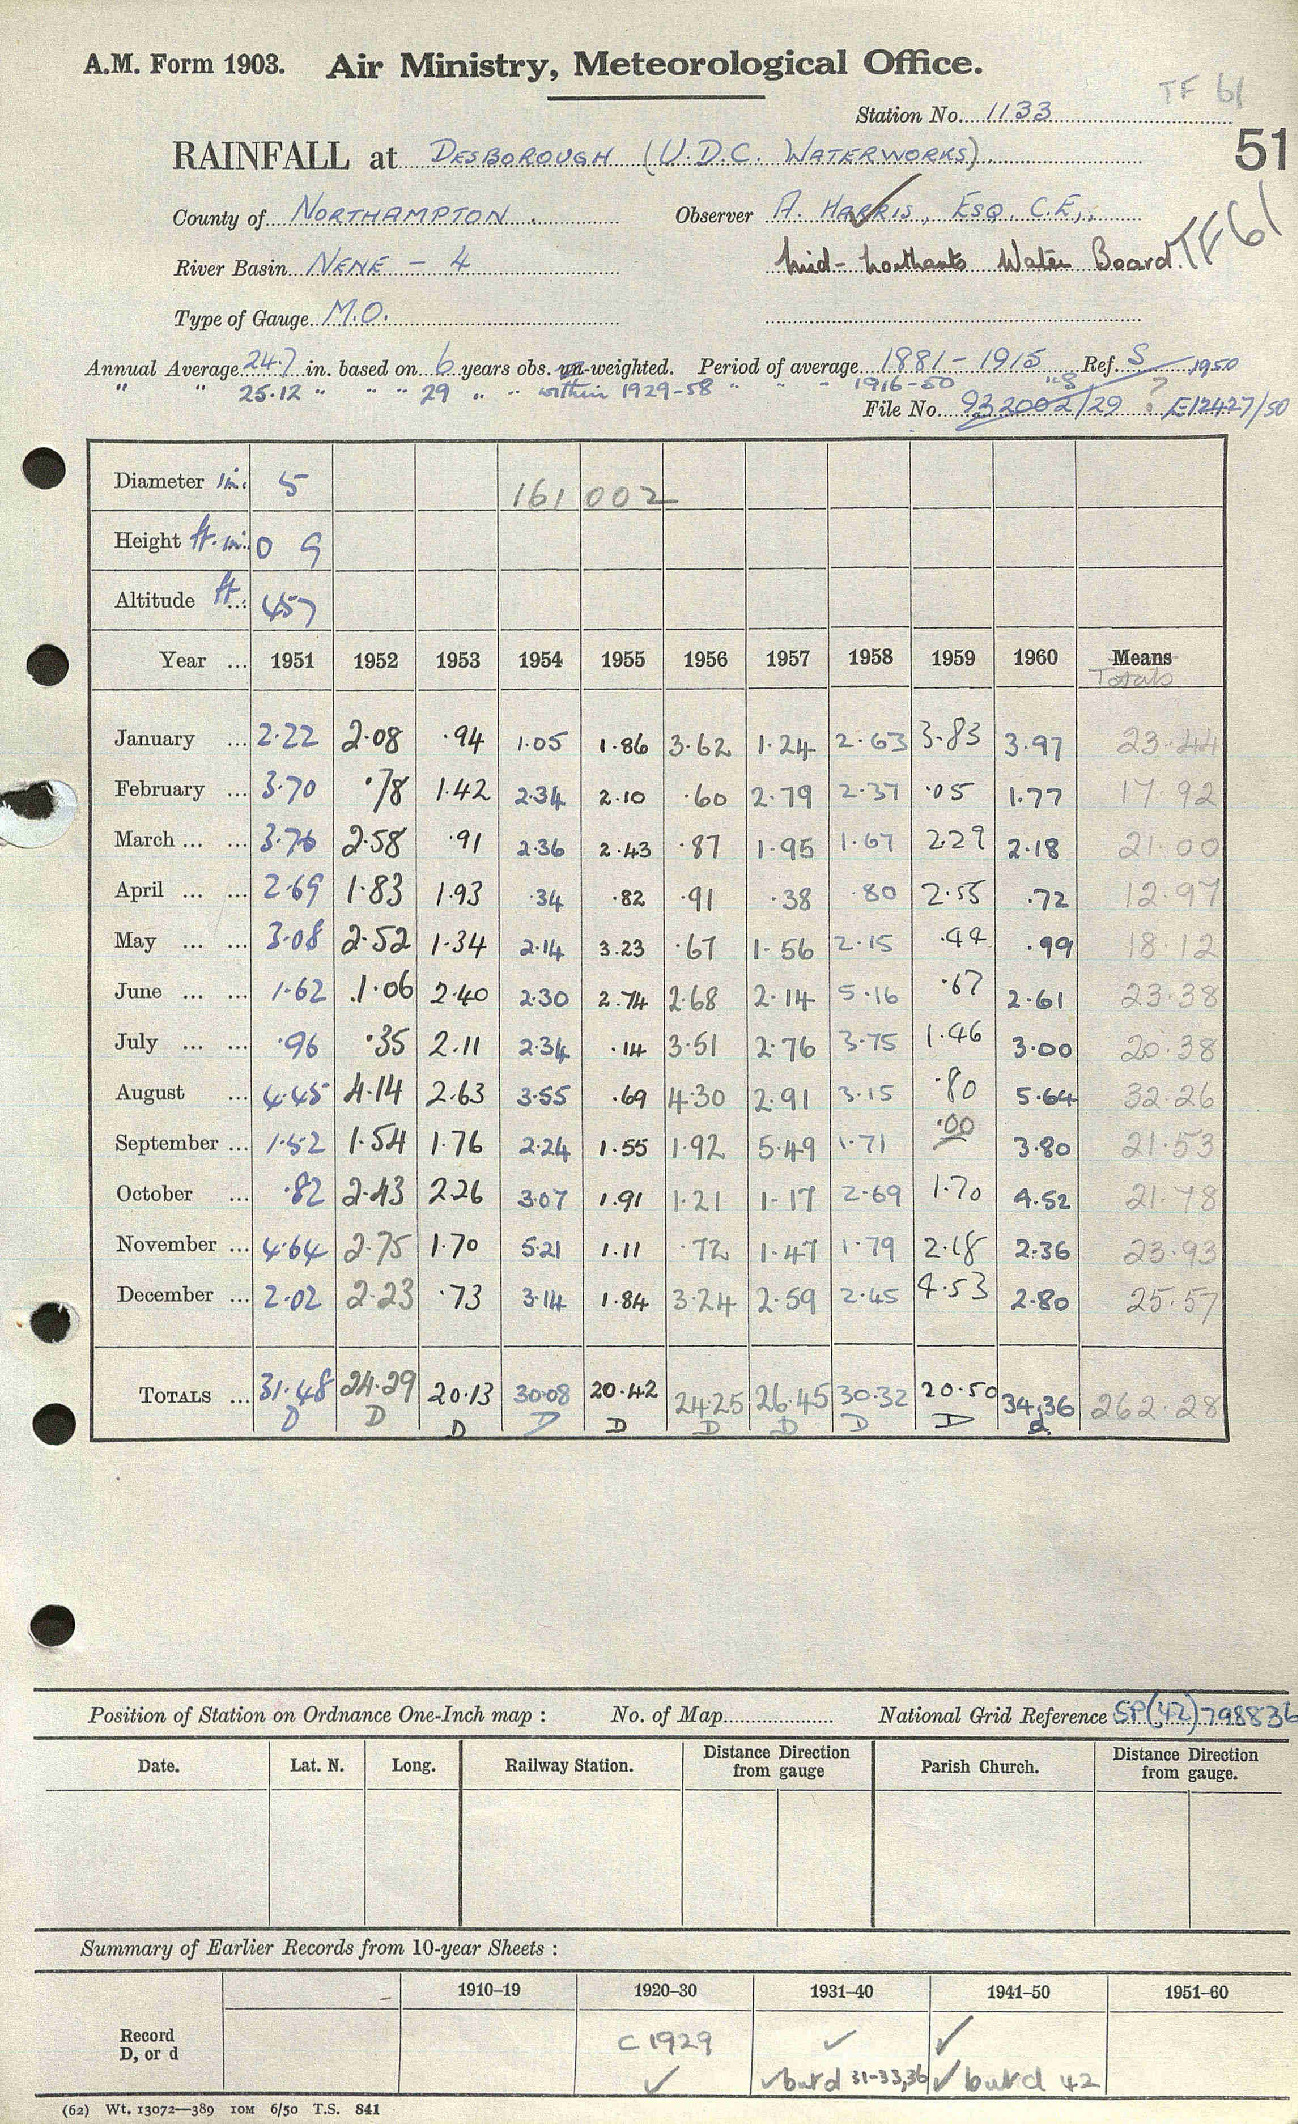 A.M. Form 1903. Air Ministry, Meteorological Office.
TF 61
Station No. 1133
51
RAINFALL at DESBOROUGH (U.D.C. WATERWORKS)
County of NORTHAMPTON. Observer A. HARRIS, ESQ. C.E.,
River Basin NENE - 4 Mid-Northants Water Board. TF61
Type of Gauge M.O.
Annual Average 24.7 in. based on 6 years obs. un-weighted. Period of average 1881-1915 Ref. S 1950
" " 25.12 " " " 29 " " within 1929-58 " " " 1916-50 "8 ?
File No. 932002/29 ? E12427/50
Diameter in. 5 161 002
Height ft. in. 0 9
Altitude ft. 457
Year ... 1951 1952 1953 1954 1955 1956 1957 1958 1959 1960 Means
Totals
January ... 2.22 2.08 .94 1.05 1.86 3.62 1.24 2.63 3.83 3.97 23.44
February ... 3.70 .78 1.42 2.34 2.10 .60 2.79 2.37 .05 1.77 17.92
March ... ... 3.76 2.58 .91 2.36 2.43 .87 1.95 1.67 2.29 2.18 21.00
April ... ... 2.69 1.83 1.93 .34 .82 .91 .38 .80 2.55 .72 12.97
May ... ... 3.08 2.52 1.34 2.14 3.23 .67 1.56 2.15 .44 .99 18.12
June ... ... 1.62 1.06 2.40 2.30 2.74 2.68 2.14 5.16 .67 2.61 23.38
July ... ... .96 .35 2.11 2.34 .14 3.51 2.76 3.75 1.46 3.00 20.38
August ... 4.45 4.14 2.63 3.55 .69 4.30 2.91 3.15 .80 5.64 32.26
September ... 1.52 1.54 1.76 2.24 1.55 1.92 5.49 1.71 .00 3.80 21.53
October ... .82 2.43 2.26 3.07 1.91 1.21 1.17 2.69 1.70 4.52 21.78
November ... 4.64 2.75 1.70 5.21 1.11 .72 1.47 1.79 2.18 2.36 23.93
December ... 2.02 2.23 .73 3.14 1.84 3.24 2.59 2.45 4.53 2.80 25.57
TOTALS ... 31.48 24.29 20.13 30.08 20.42 24.25 26.45 30.32 20.50 34.36 262.28
D D D D D D D D D d
Position of Station on Ordnance One-Inch map : No. of Map National Grid Reference SP(42)798836
Date. Lat. N. Long. Railway Station. Distance Direction from gauge Parish Church. Distance Direction from gauge.
Summary of Earlier Records from 10-year Sheets :
1910–19 1920–30 1931–40 1941–50 1951–60
Record
D, or d
C 1929 ✓ ✓
✓ ✓ but d 31-33,36 ✓ but d 42
(62) Wt. 13072—389 10M 6/50 T.S. 841